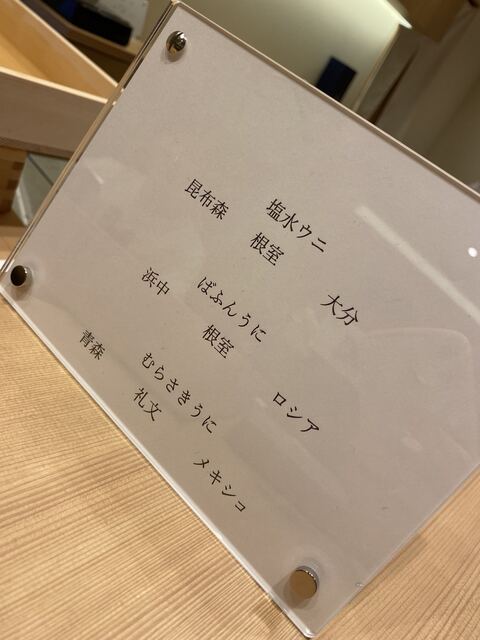 塩水ウニ
昆布森 根室 大分
ばふんうに
浜中 根室 ロシア
むらさきうに
青森 礼文 メキシコ